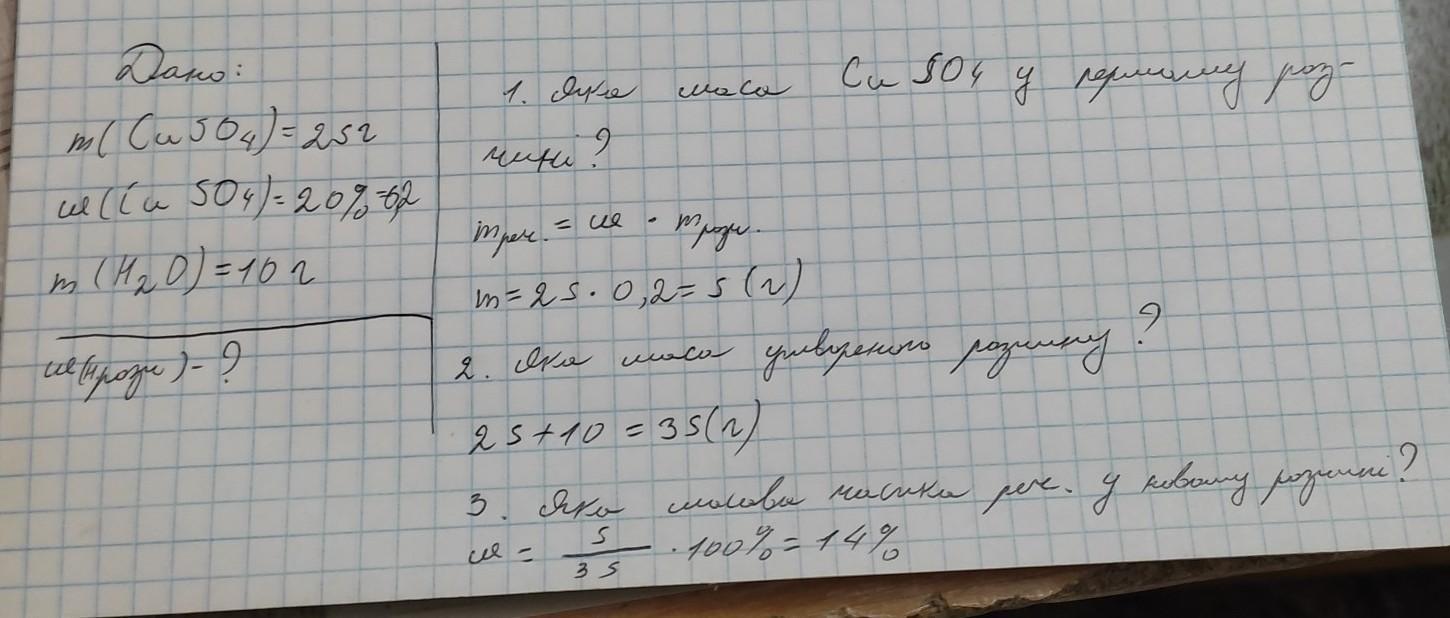 Дано:
m(CuSO4)=25г
w(CuSO4)=20%=0,2
m(H2O)=10г
w(нрозч)-?
1. Яка маса CuSO4 у першому роз-
чині?
mреч.=w·mрозч.
m=25·0,2=5(г)
2. Яка маса утвореного розчину?
25+10=35(г)
3. Яка масова частка реч. у новому розчині?
w=5/35·100%=14%